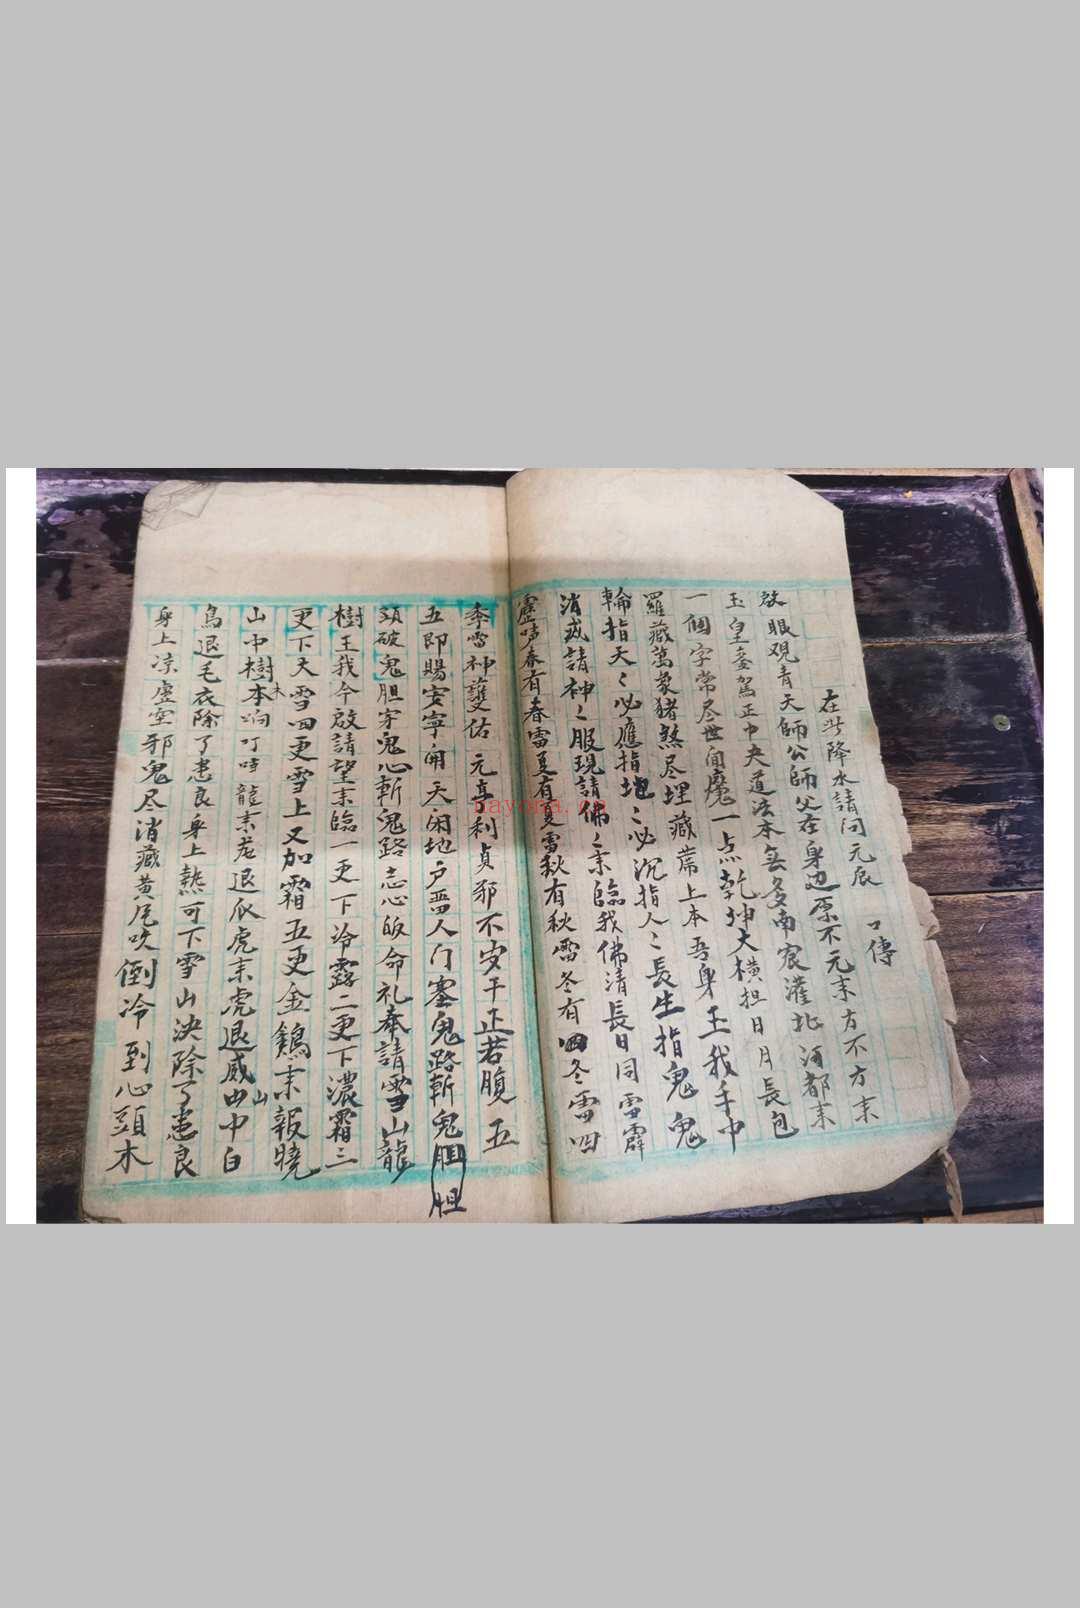 口傳
在此降水請问元辰
啟眼观青天師公師父在身边原不元耒方不方耒
玉皇銮駕正中央道法本無多南宸灌北河都耒
一個字常尽世间魔一点乾坤大横担日月長包
羅藏萬象猪煞尽埋藏蓆上本吾身玉我手中
輪指天〻必應指地〻必沉指人〻長生指鬼鬼
消烕請神〻服現請佛〻耒臨我佛清長日同雪霹
靂吰春有春雷夏有夏雷秋有秋雷冬有冬雷四
季雷神護佑元亨利貞邪不岁干正若腹五
五即賜安宁開天闲地户畱人门塞鬼路斬鬼胆
胆
頭破鬼胆穿鬼心斬鬼路志心皈命礼奉請雪山龍
樹王我今啟請望耒臨一更下冷露二更下濃霜三
更下大雪四更雪上又加霜五更金鷄耒報曉
山中樹木本响叮噹龍耒龙退爪虎耒虎退威山中白
鳥退毛衣除了患良身上熱可下雪山决除了患良
身上凉虚空邪鬼尽消藏黄尾吹倒冷到心頭木
nayona.cn